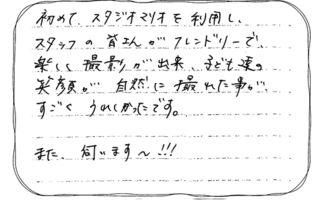 初めて、スタジオマリオを利用し、
スタッフの皆さんがフレンドリーで、
楽しく撮影が出来、子ども達の
笑顔が自然に撮れた事が、
すごくうれしかったです。
また、伺います〜!!!